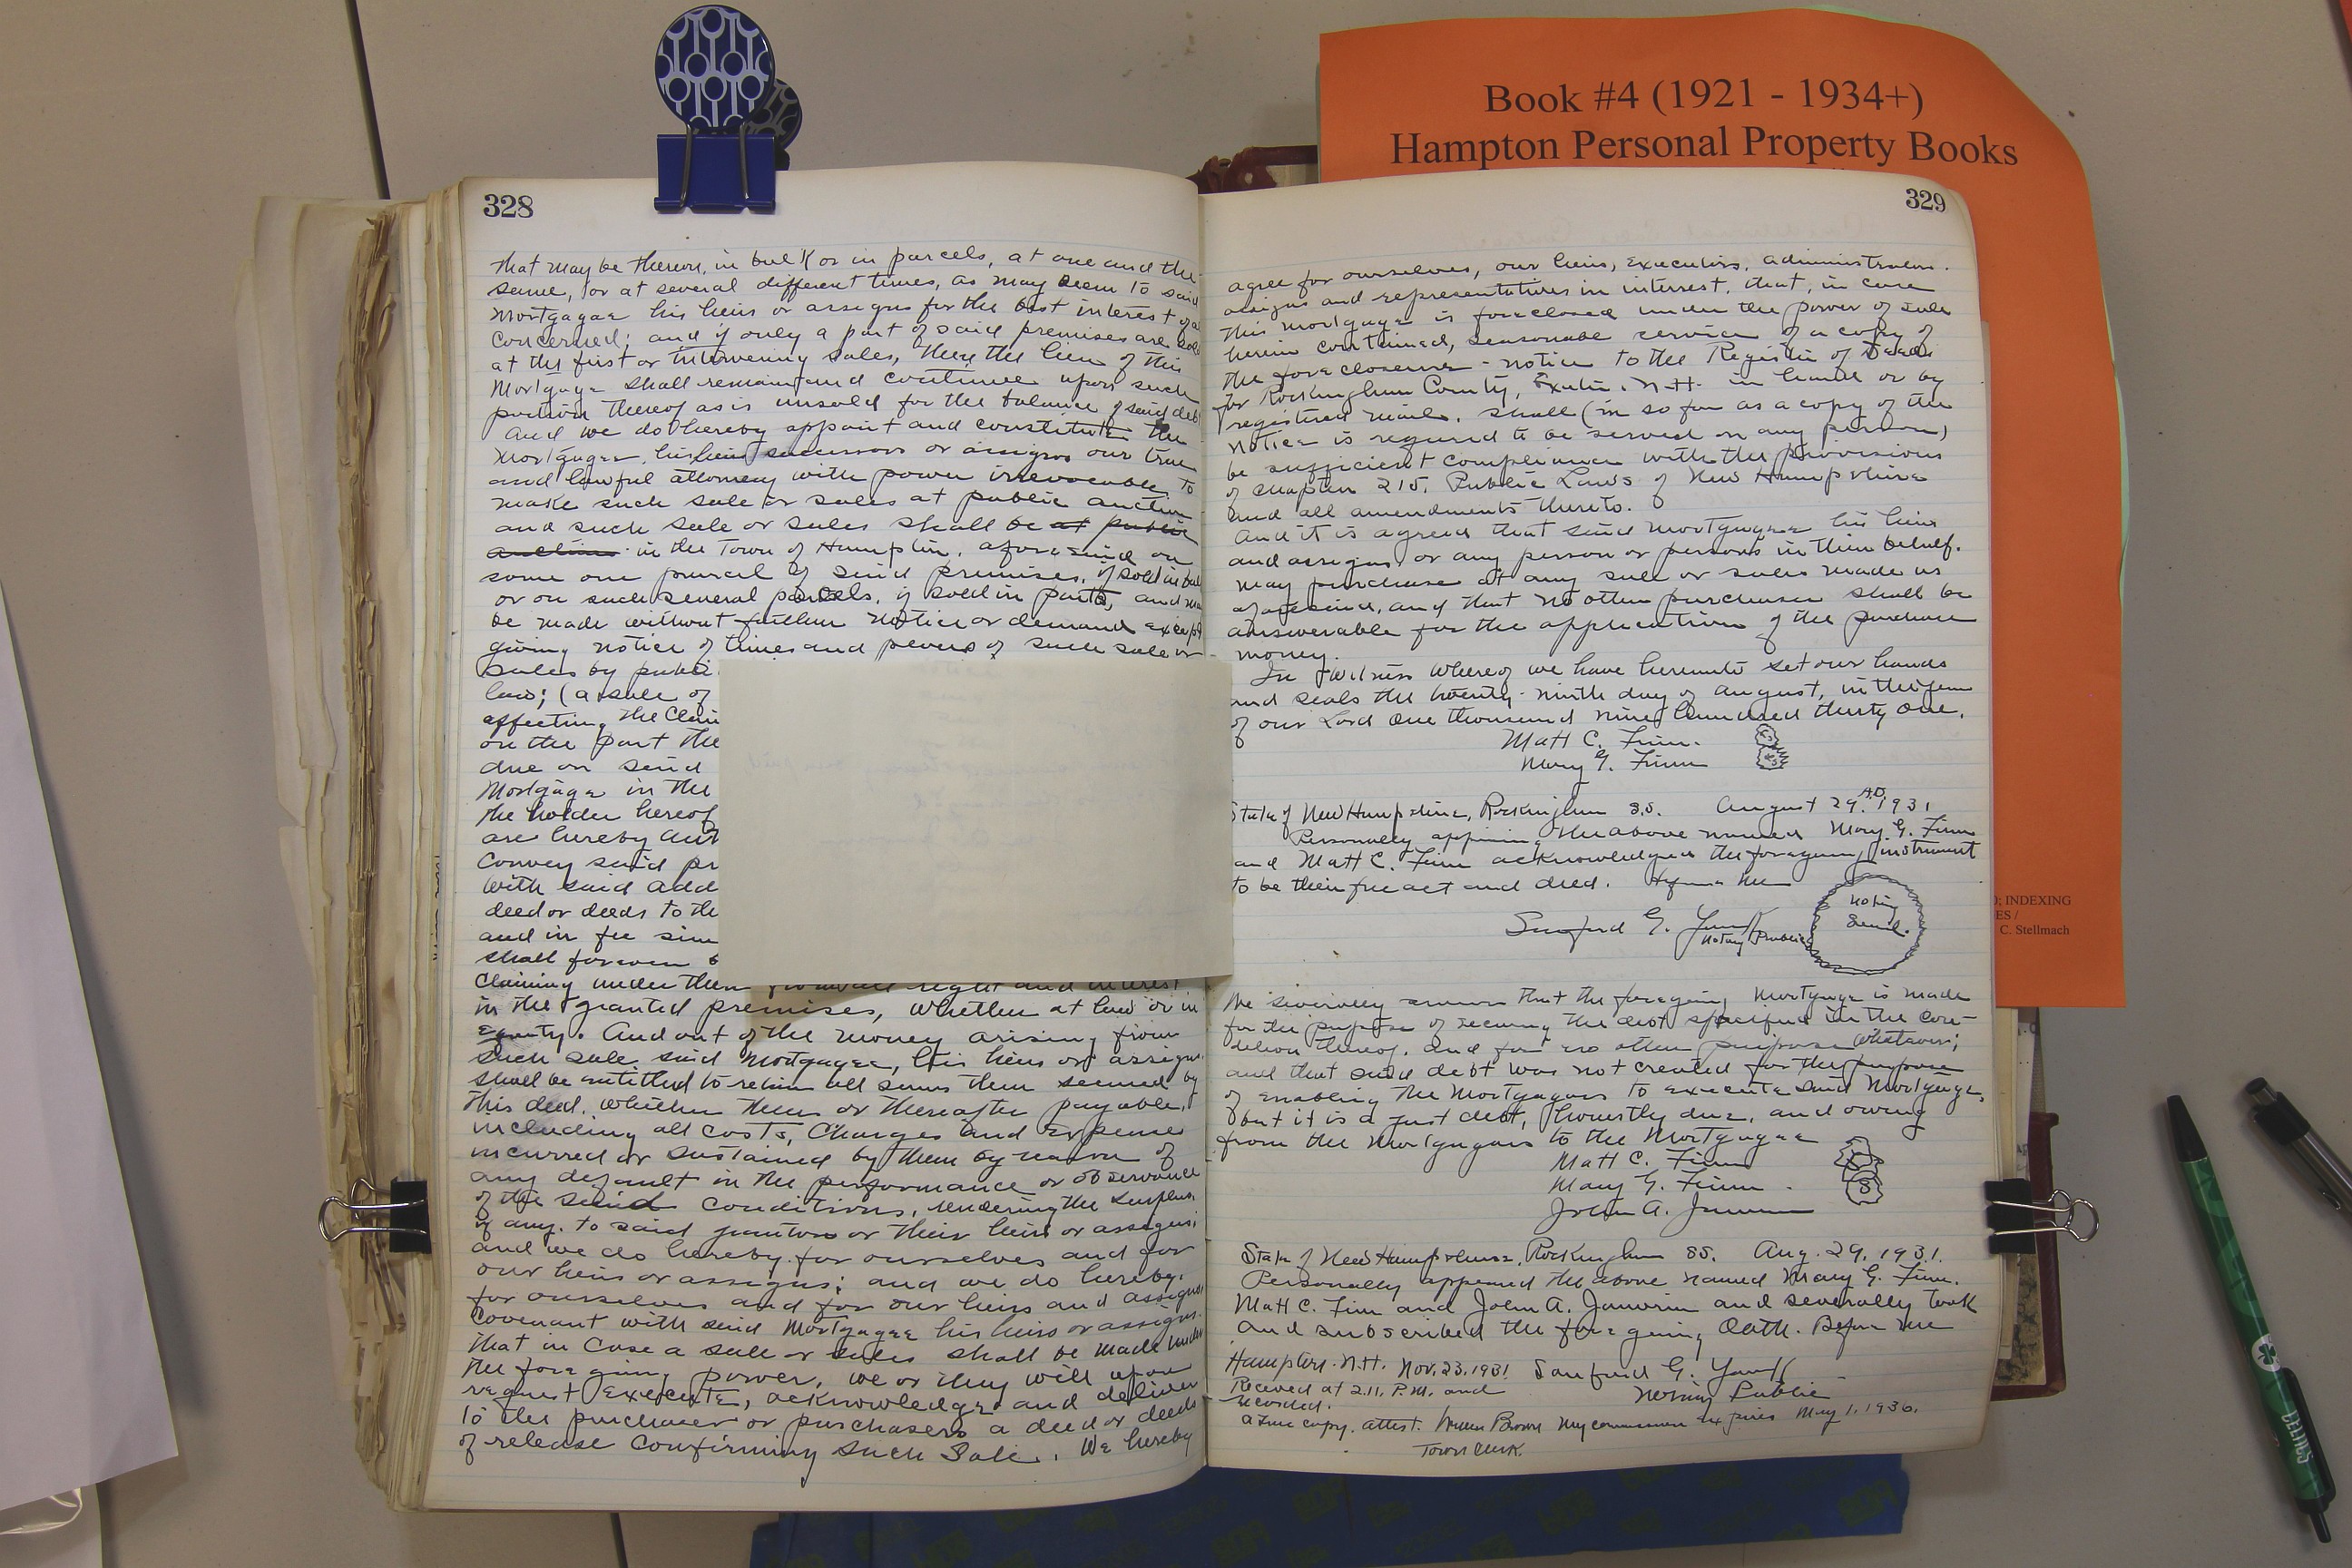 Book #4 (1921 - 1934+)
Hampton Personal Property Books
328
that may be thereon, in bulk or in parcels, at one and the
same, or at several different times, as may seem to said
Mortgagee his heirs or assigns for the best interest of all
concerned; and if only a part of said premises are sold
at the first or intervening sales, then the lien of this
Mortgage shall remain and continue upon such
portion thereof as is unsold for the balance of said debt
And we do hereby appoint and constitute the
Mortgagee, his heirs successors or assigns our true
and lawful attorney with power irrevocable to
make such sale or sales at public auction
and such sale or sales shall be at public
auction in the Town of Hampton, aforesaid on
some one parcel of said premises, if sold in bulk
or on such several parcels, if sold in parts, and may
be made without further notice or demand except
giving notice of times and places of such sale or
sales by public
law; (a sale of
affecting the claim
on the part the
due on said
Mortgage in the
the holder hereof
are hereby aut
convey said pr
with said add
deed or deeds to the
and in fee sim
shall forever b
claiming under them from all right and interest
in the granted premises, whether at law or in
equity. And out of the money arising from
such sale said Mortgagee, his heirs or assigns
shall be entitled to retain all sums then secured by
this deed, whether then or thereafter payable,
including all costs, charges and expense
incurred or sustained by them by reason of
any default in the performance or observance
of the said conditions, rendering the surplus
if any, to said grantors or their heirs or assigns;
and we do hereby for ourselves and for
our heirs or assigns; and we do hereby,
for ourselves and for our heirs and assigns
covenant with said Mortgagee his heirs or assigns
that in case a sale or sales shall be made under
the foregoing power, we or they will upon
request execute, acknowledge and deliver
to the purchaser or purchasers a deed or deeds
of release confirming such Sale. We hereby
329
agree for ourselves, our heirs, executors, administrators.
assigns and representatives in interest, that, in case
this mortgage is foreclosed under the power of sale
herein contained, seasonable service of a copy of
the foreclosure - notice to the Register of Deeds
for Rockingham County, Exeter, N.H. in hand or by
registered mail, shall (in so far as a copy of the
notice is required to be served on any person)
be sufficient compliance with the provisions
of chapter 215, Public Laws of New Hampshire
and all amendments thereto.
And it is agreed that said Mortgagee his heirs
and assigns, or any person or persons in their behalf.
may purchase at any sale or sales made as
aforesaid, and that no other purchaser shall be
answerable for the application of the purchase
money.
In Witness Whereof we have hereunto set our hands
and seals the twenty-ninth day of August, in the year
of our Lord one thousand nine hundred thirty one.
Matt C. Finn.
Mary G. Finn
State of New Hampshire, Rockingham S.S. August 29, A.D. 1931
Personally appearing the above named Mary G. Finn
and Matt C. Finn acknowledged the foregoing instrument
to be their free act and deed. Before me
Sanford G.
Notary Public
Notary
Seal.
We severally swear that the foregoing Mortgage is made
for the purpose of securing the debt specified in the con-
dition thereof, and for no other purpose whatever;
and that said debt was not created for the purpose
of enabling the Mortgagors to execute said Mortgage,
but it is a just debt, honestly due, and owing
from the Mortgagors to the Mortgagee
Matt C. Finn
Mary G. Finn
John A. Janvrin
State of New Hampshire, Rockingham SS. Aug. 29, 1931.
Personally appeared the above named Mary G. Finn.
Matt C. Finn and John A. Janvrin and severally took
and subscribed the foregoing Oath. Before me
Hampton N.H. Nov. 23, 1931 Sanford G.
Received at 2.11. P.M. and Notary Public
recorded.
a true copy. attest. Brown My commission expires May 1, 1936.
Town Clerk.
; INDEXING
ES /
C. Stellmach
CELTICS